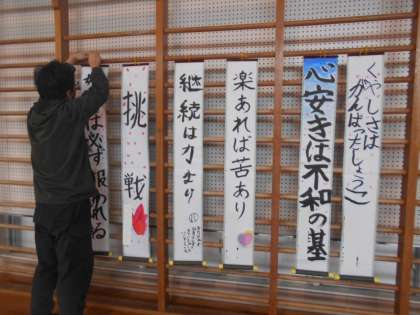 くやしさは
がんばったしょうこ
心安きは不和の基
楽あれば苦あり
継続は力なり
挑戦
は必ず報われる